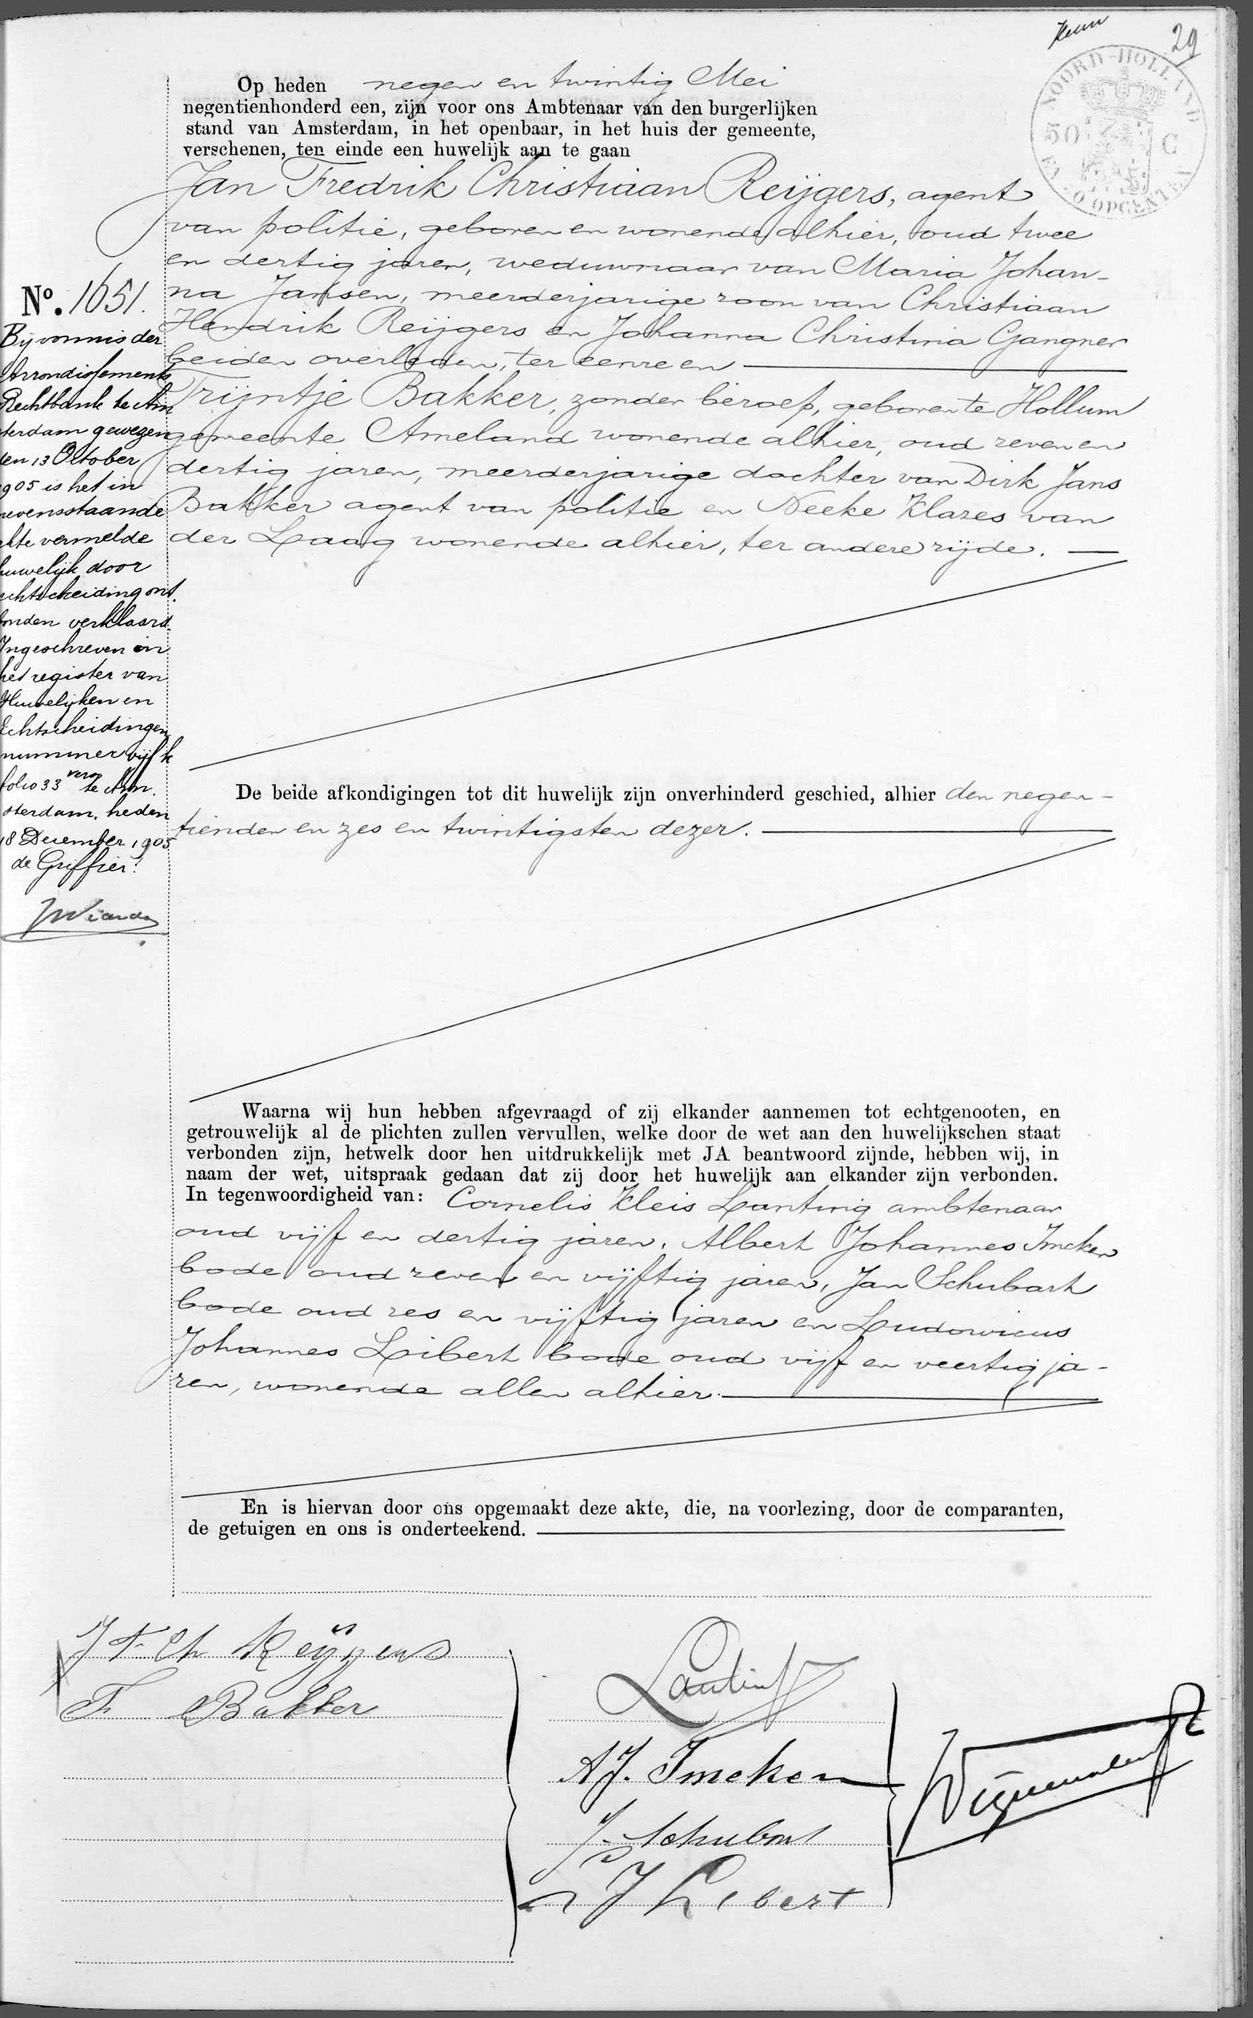 29
NOORD-HOLLAND
50 C
Op heden negen en twintig Mei
negentienhonderd een, zijn voor ons Ambtenaar van den burgerlijken
stand van Amsterdam, in het openbaar, in het huis der gemeente,
verschenen, ten einde een huwelijk aan te gaan
Jan Fredrik Christiaan Reijgers, agent
van politie, geboren en wonende alhier, oud twee
en dertig jaren, weduwnaar van Maria Johan-
na Jansen, meerderjarige zoon van Christiaan
Hendrik Reijgers en Johanna Christina Gangner
beiden overleden, ter eenre en
Trijntje Bakker, zonder beroep, geboren te Hollum
gemeente Ameland wonende alhier, oud zeven en
dertig jaren, meerderjarige dochter van Dirk Jans
Bakker agent van politie en Neeke Klazes van
der Laag wonende alhier, ter andere zijde.
No. 1651.
Bij vonnis der
Arrondissements
Rechtbank te Am
sterdam gewezen
den 13 October
1905 is het in
nevensstaande
akte vermelde
huwelijk door
echtscheiding ont
bonden verklaard.
Ingeschreven in
het register van
Huwelijken en
Echtscheidingen
nummer vijf k
folio 33 verso te Am.
sterdam, heden
18 December 1905
de Griffier.
De beide afkondigingen tot dit huwelijk zijn onverhinderd geschied, alhier den negen-
tienden en zes en twintigsten dezer.
Waarna wij hun hebben afgevraagd of zij elkander aannemen tot echtgenooten, en
getrouwelijk al de plichten zullen vervullen, welke door de wet aan den huwelijkschen staat
verbonden zijn, hetwelk door hen uitdrukkelijk met JA beantwoord zijnde, hebben wij, in
naam der wet, uitspraak gedaan dat zij door het huwelijk aan elkander zijn verbonden.
In tegenwoordigheid van: Cornelis Kleis Lanting ambtenaar
oud vijf en dertig jaren, Albert Johannes Imeken
bode oud zeven en vijftig jaren, Jan Schubart
bode oud zes en vijftig jaren en Ludovicus
Johannes Libert bode oud vijf en veertig ja-
ren, wonende allen alhier.
En is hiervan door ons opgemaakt deze akte, die, na voorlezing, door de comparanten,
de getuigen en ons is onderteekend.
J F Ch Reijgers
T Bakker
Lanting
A J. Imeken
J. Schubart
L J Libert